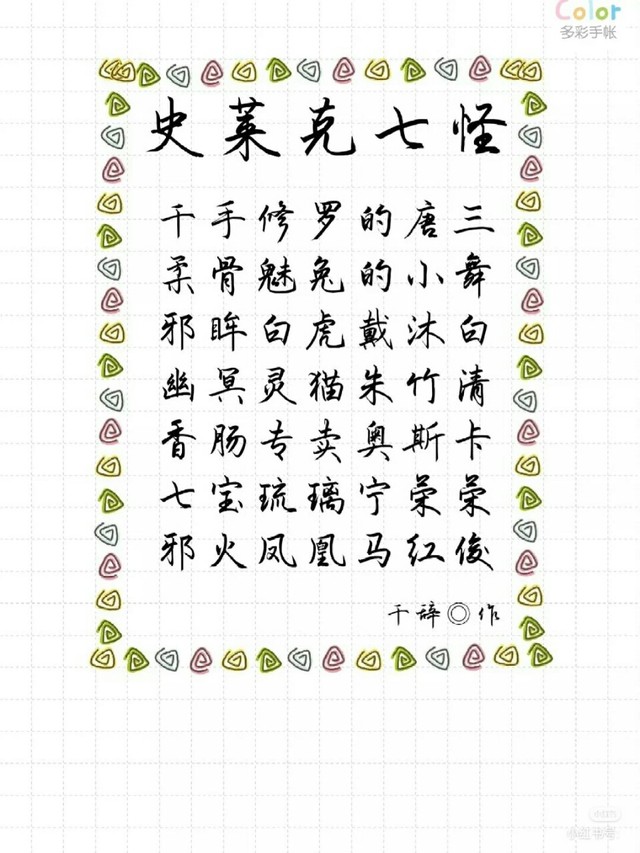 Color
多彩手帐
史莱克七怪
千手修罗的唐三
柔骨魅兔的小舞
邪眸白虎戴沐白
幽冥灵猫朱竹清
香肠专卖奥斯卡
七宝琉璃宁荣荣
邪火凤凰马红俊
千辞◎作
小红书号